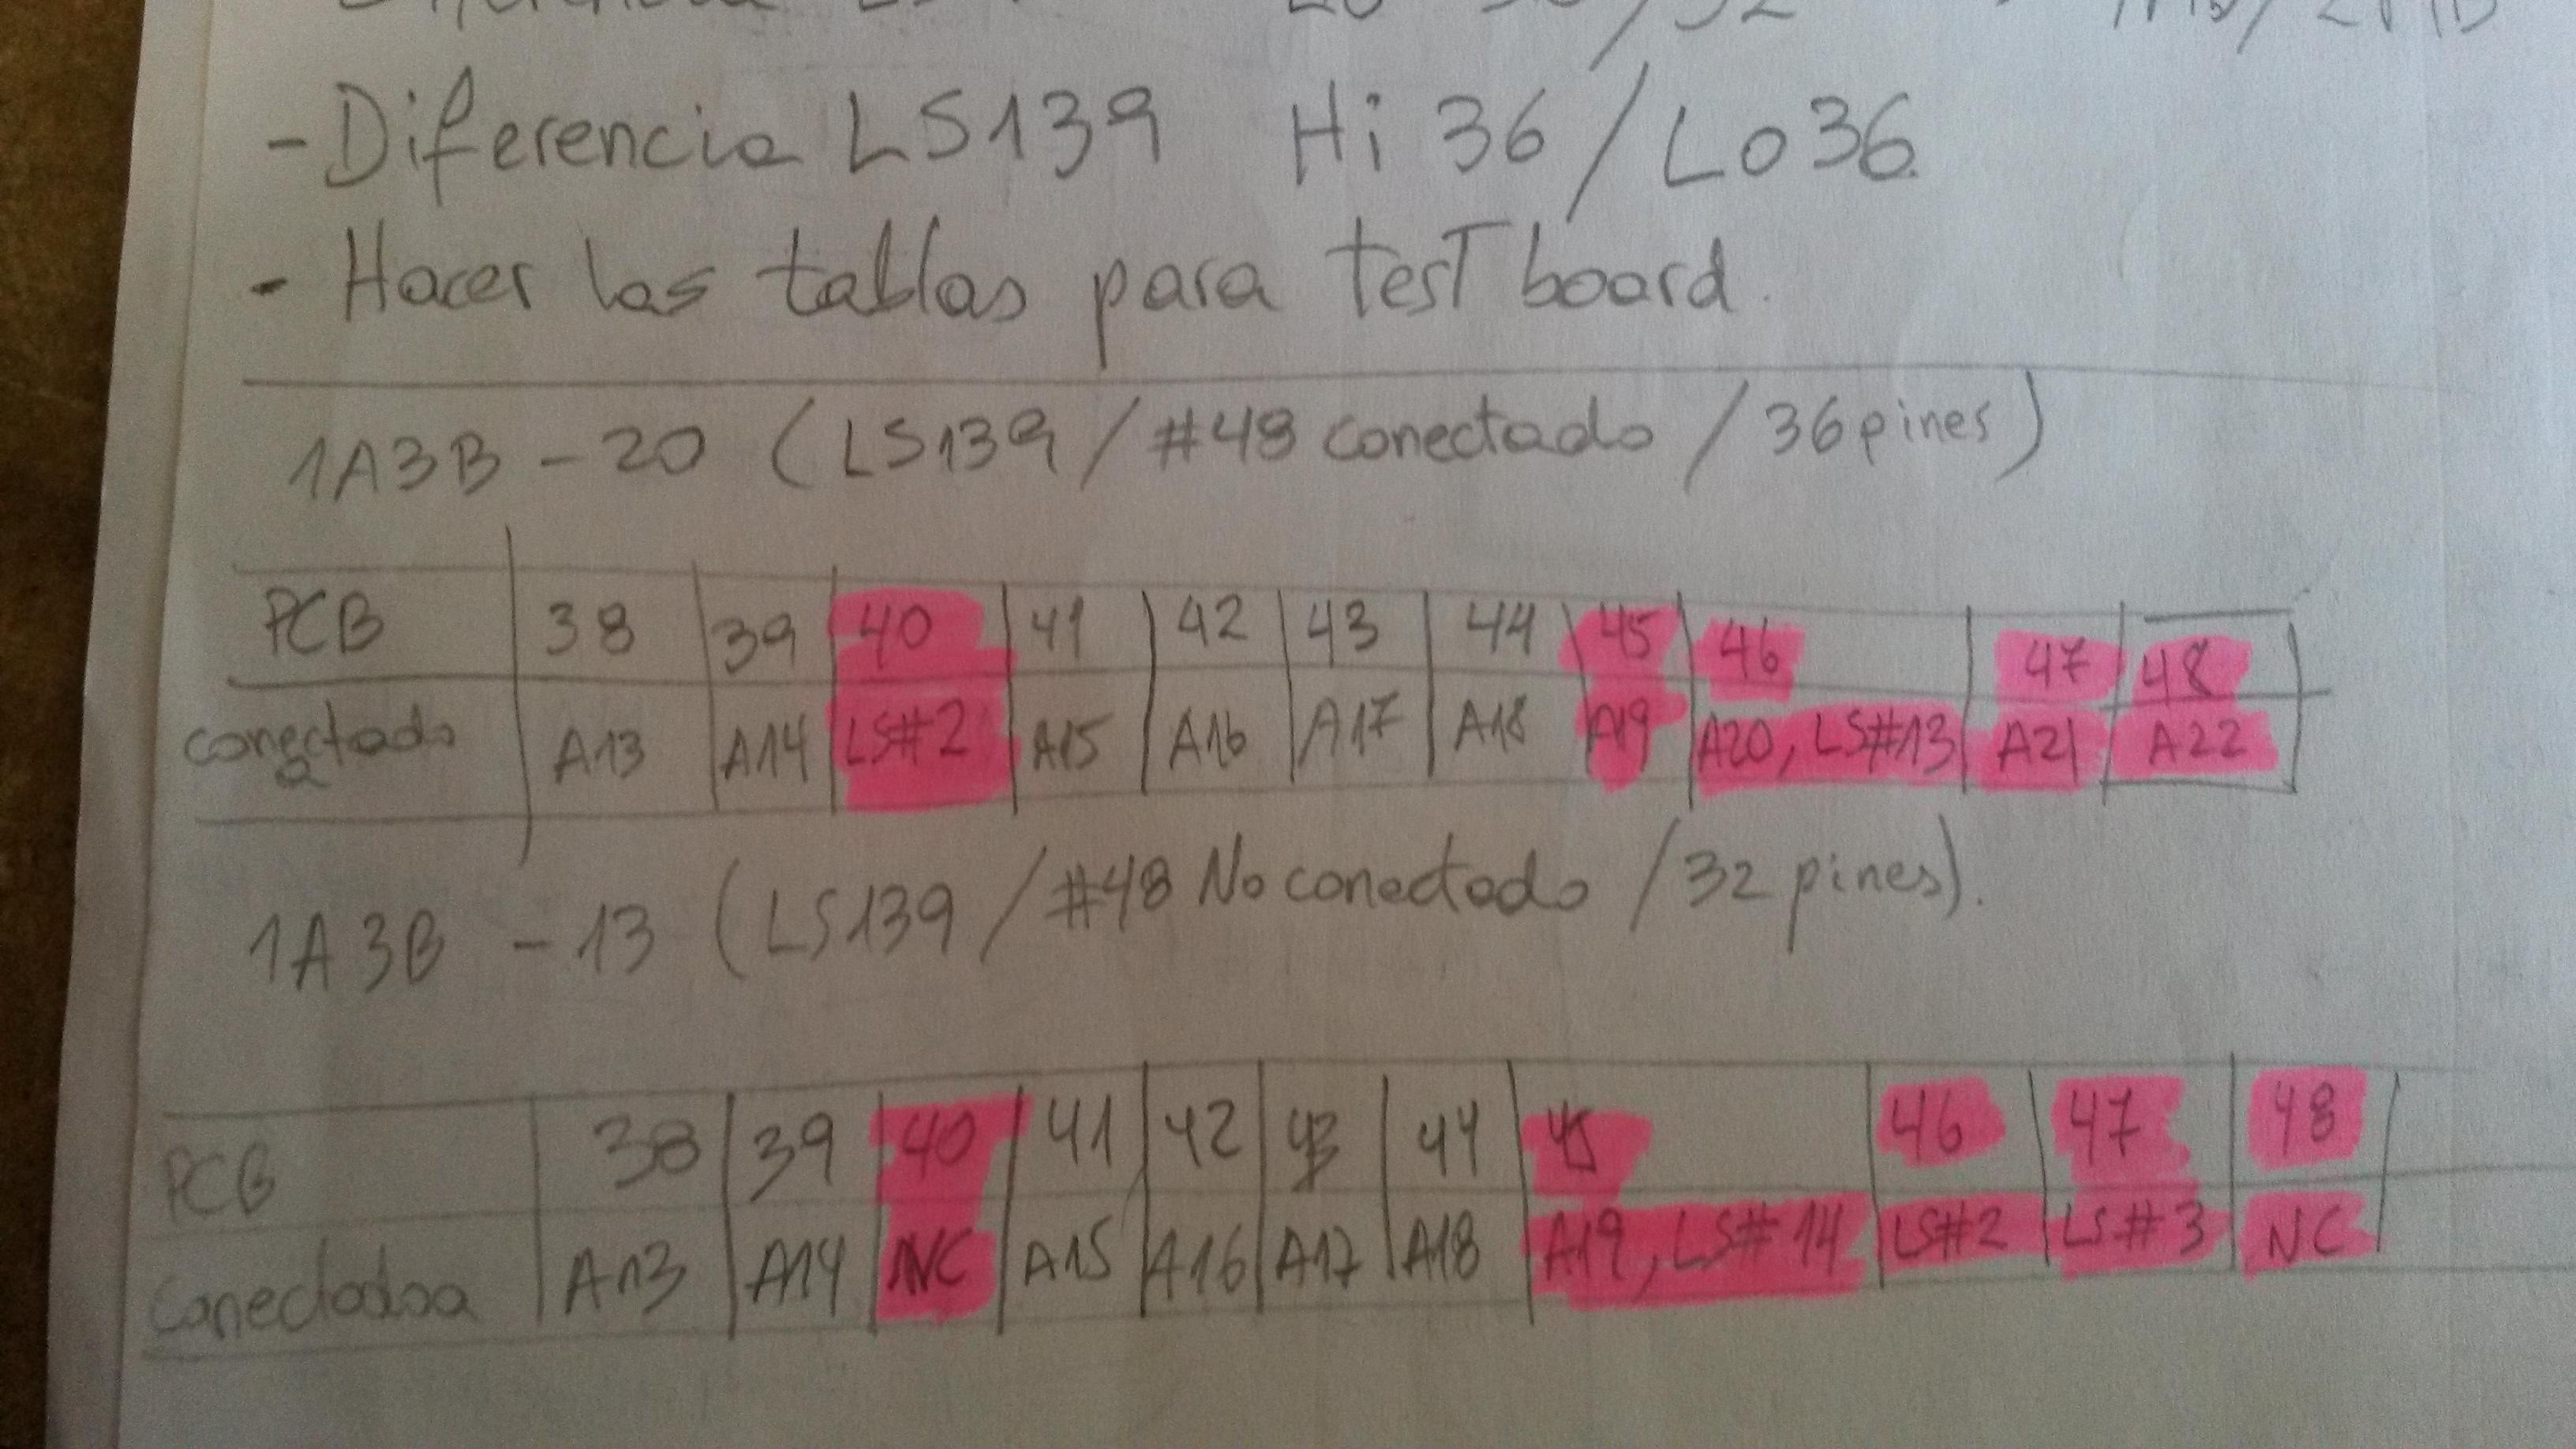 - Diferencia LS139 Hi 36/Lo36
- Hacer las tablas para test board.
1A3B - 20 (LS139/#48 conectado/36pines)
PCB 38 39 40 41 42 43 44 45 46 47 48
conectado a A13 A14 LS#2 A15 A16 A17 A18 A19 A20, LS#13 A21 A22
1A3B - 13 (LS139/#48 No conectado/32 pines).
PCB 38 39 40 41 42 43 44 45 46 47 48
conectado a A13 A14 NC A15 A16 A17 A18 A19, LS#14 LS#2 LS#3 NC